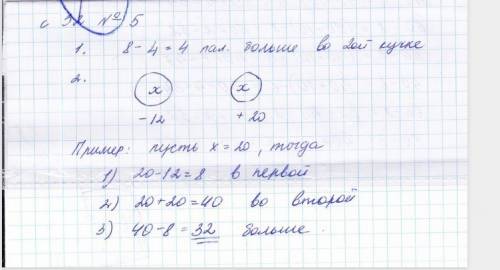 с 32 № 5
1. 8 - 4 = 4 пал. больше во 2ой кучке
2. х х
-12 +20
Пример: пусть х = 20, тогда
1) 20-12=8 в первой
2) 20+20=40 во второй
3) 40-8=32 больше.